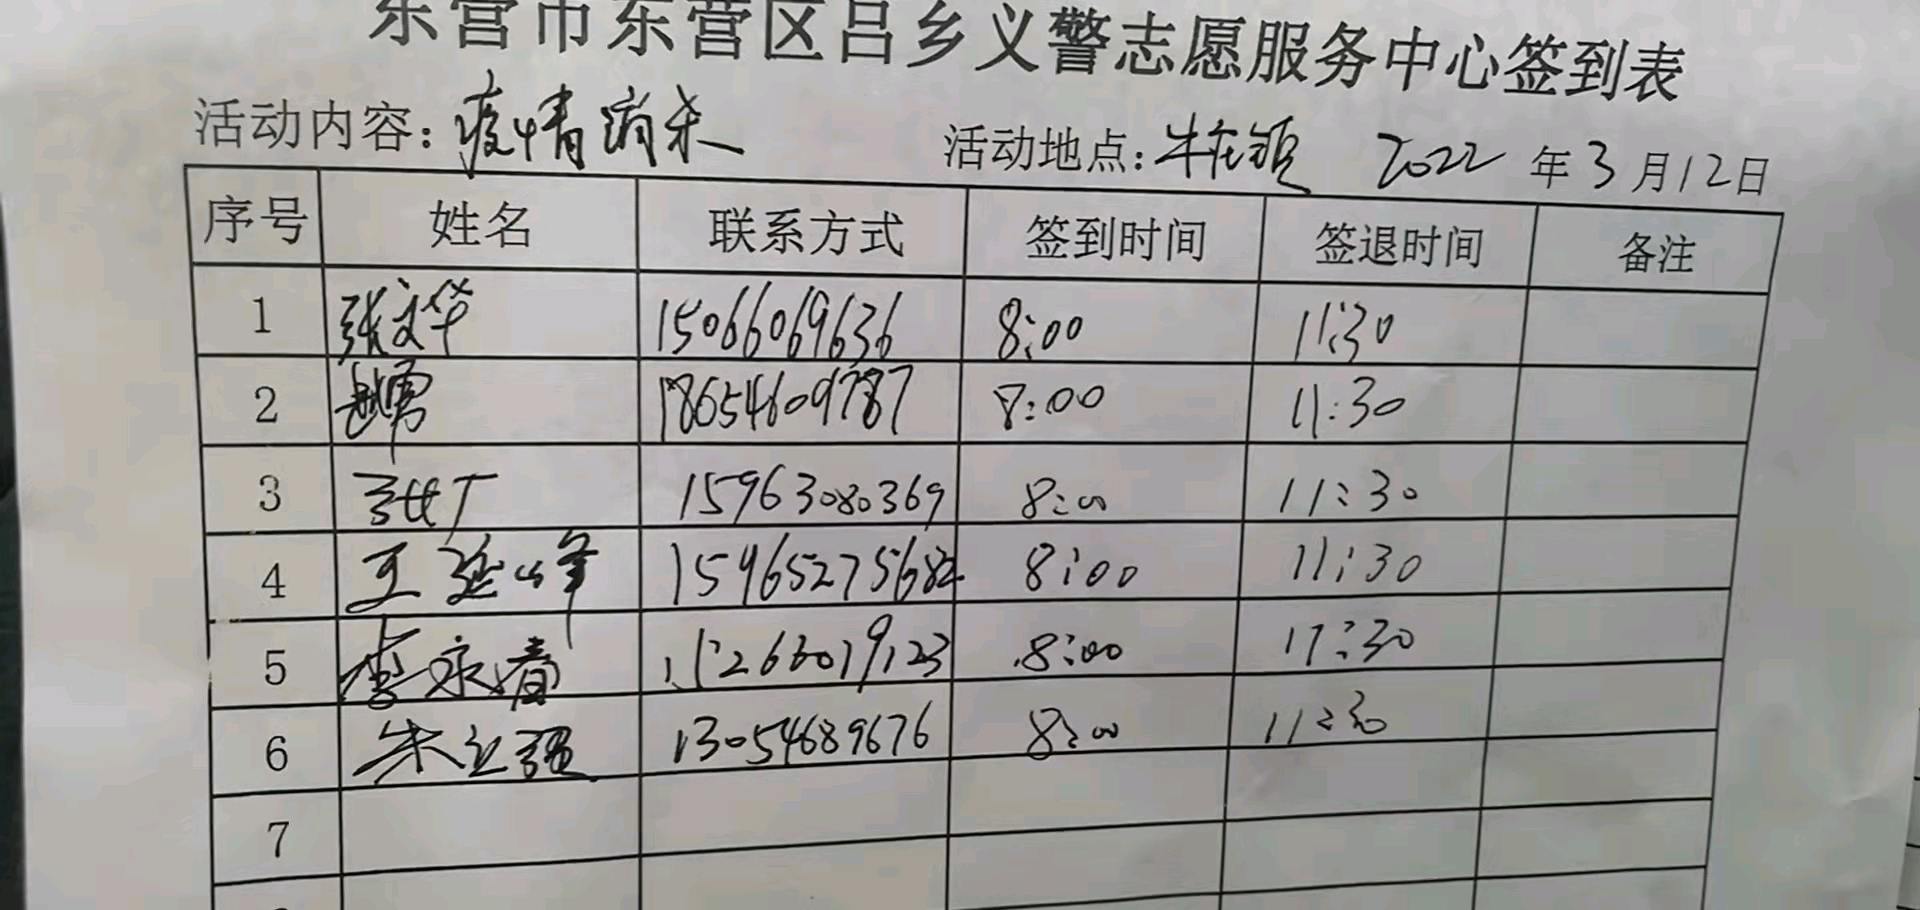 东营市东营区吕乡义警志愿服务中心签到表
活动内容：疫情消杀 活动地点：牛庄镇 2022年3月12日
序号 姓名 联系方式 签到时间 签退时间 备注
1 张文华 15066069636 8:00 11:30
2 赵勇 18654609787 8:00 11:30
3 15963080369 8:00 11:30
4 王延峰 15965275682 8:00 11:30
5 李永春 8:00 11:30
6 朱立强 13054689676 8:00 11:30
7